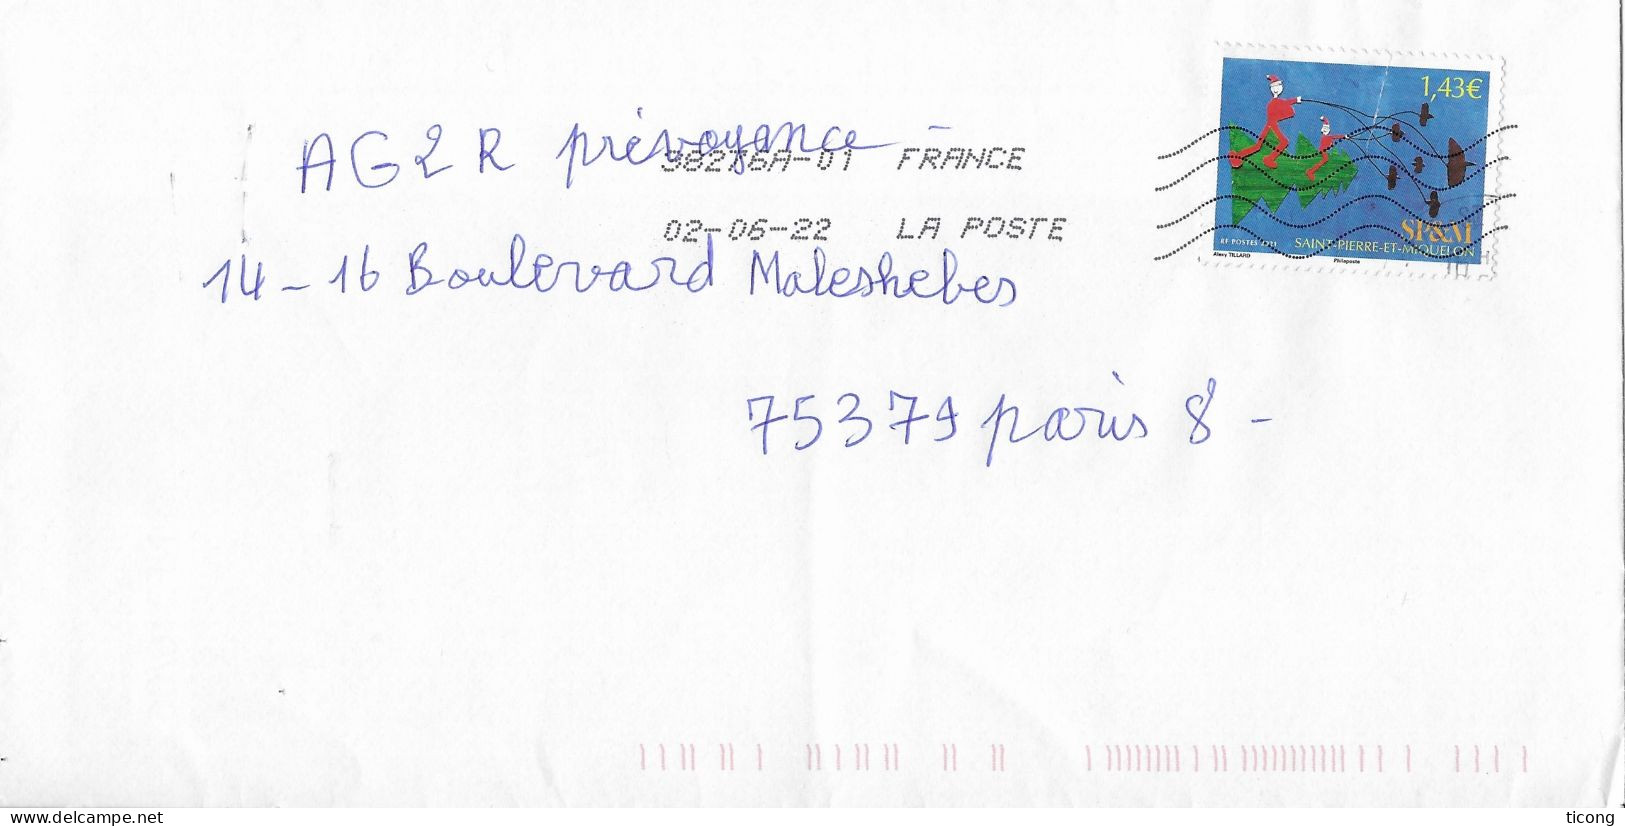 1,43€
AG2R prévoyance -
38276A-01 FRANCE
02-06-22 LA POSTE
SP&M
SAINT-PIERRE-ET-MIQUELON
RF POSTES
Alexy TILLARD Philaposte
14-16 Boulevard Maleshebes
75379 paris 8 -
delcampe.net
ticong